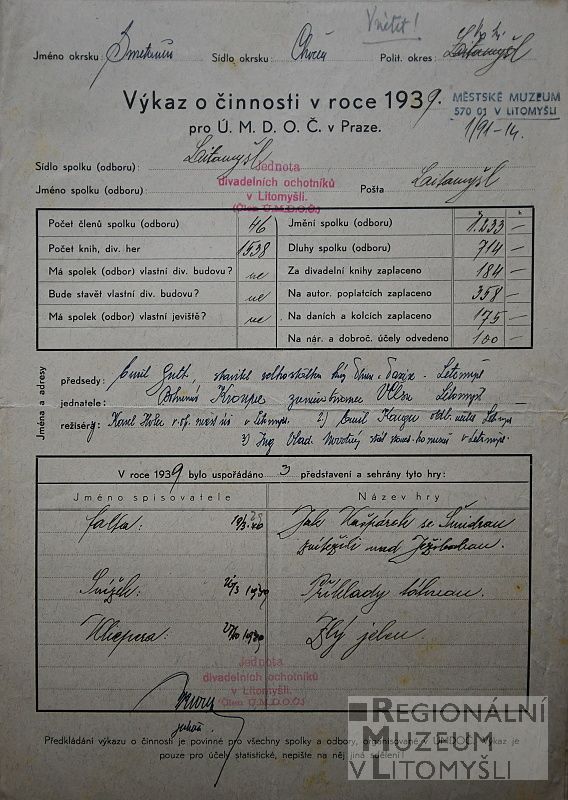 Vrátit!
Jméno okrsku: Smetanův Sídlo okrsku: Choceň Polit. okres: Litomyšl
Výkaz o činnosti v roce 1939.
pro Ú. M. D. O. Č. v Praze.
MĚSTSKÉ MUZEUM
570 01 V LITOMYŠLI
1/91-14.
Sídlo spolku (odboru): Litomyšl
Jednota
divadelních ochotníků
v Litomyšli.
(Člen Ú.M.D.O.Č.)
Jméno spolku (odboru): Pošta Litomyšl
Počet členů spolku (odboru) 46 Jmění spolku (odboru) 1.233 —
Počet knih, div. her 1538 Dluhy spolku (odboru) 714 —
Má spolek (odbor) vlastní div. budovu? ne Za divadelní knihy zaplaceno 184 —
Bude stavět vlastní div. budovu? ne Na autor. poplatcích zaplaceno 358 —
Má spolek (odbor) vlastní jeviště? ne Na daních a kolcích zaplaceno 175 —
Na nár. a dobroč. účely odvedeno 100 —
Jména a adresy
předsedy: Emil Litomyšl
jednatele: Bohumil Litomyšl
režisérů: Karel v Litomyšl. 2) Emil Litomyšl
3) Ing Vlad. Novotný v Litomyšl.
V roce 1939 bylo uspořádáno 3 představení a sehrány tyto hry:
Jméno spisovatele Název hry
Jak Kašpárek se Šmidrou
zvítězili nad Ježibabou.
1939 Příklady táhnou.
Klicpera: 1939 Zlý jelen.
Jednota
divadelních ochotníků
v Litomyšli.
(Člen Ú.M.D.O.Č.)
Předkládání výkazu o činnosti je povinné pro všechny spolky a odbory, organisované v ÚMDOČ. Výkaz je
pouze pro účel statistické, nepište na něj jiná sdělení!
REGIONÁLNÍ
MUZEUM
V LITOMYŠLI